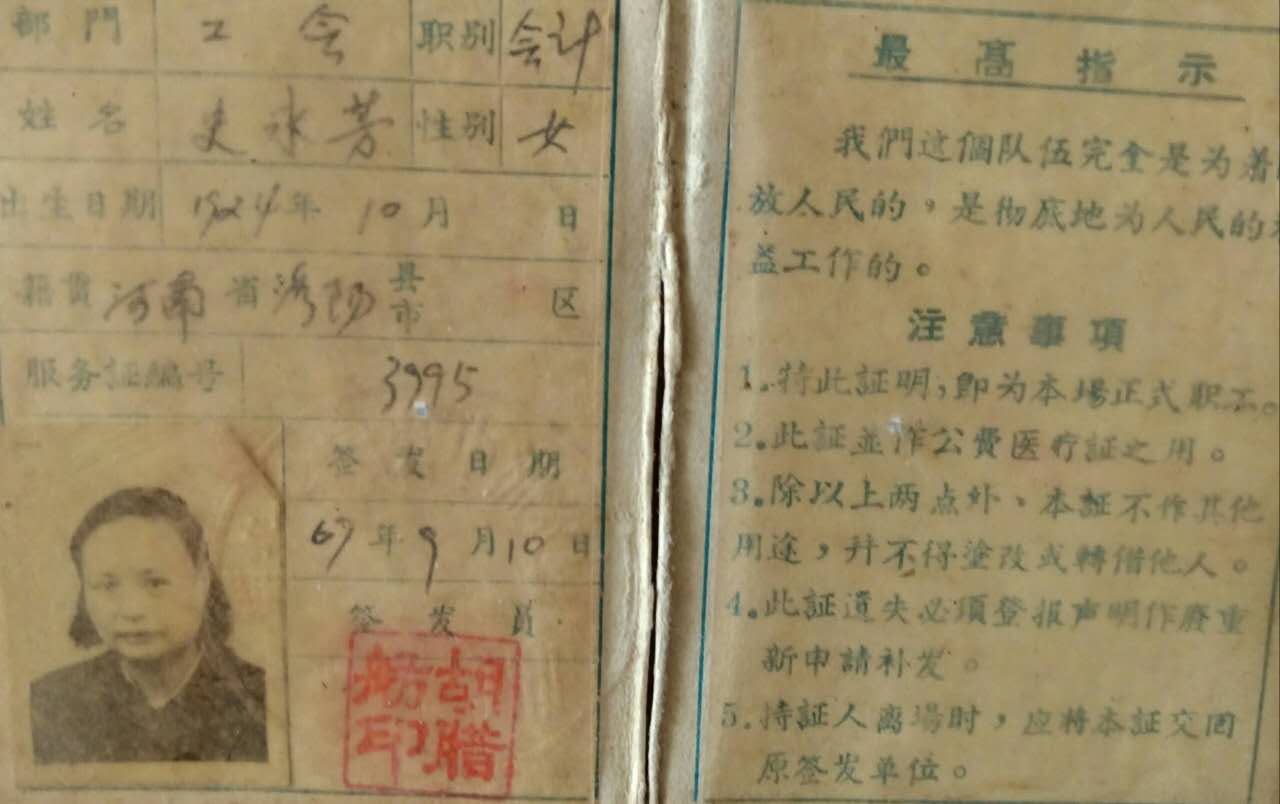 部門 工会 职别 会计
姓名 史永芳 性别 女
出生日期 1924年10月 日
籍貫 河南省 阳县市 区
服务証編号 3995
签发日期
67年9月10日
签发员
胡腊
印
最高指示
我們这個队伍完全是为着
放人民的，是彻底地为人民的
益工作的。
注意事項
1.持此証明，即为本場正式职工。
2.此証並作公費医疗証之用。
3.除以上两点外、本証不作其他
用途，幷不得塗改或轉借他人。
4.此証遺失必須登报声明作廢重
新申請补发。
5.持証人离場时，应将本証交回
原签发单位。